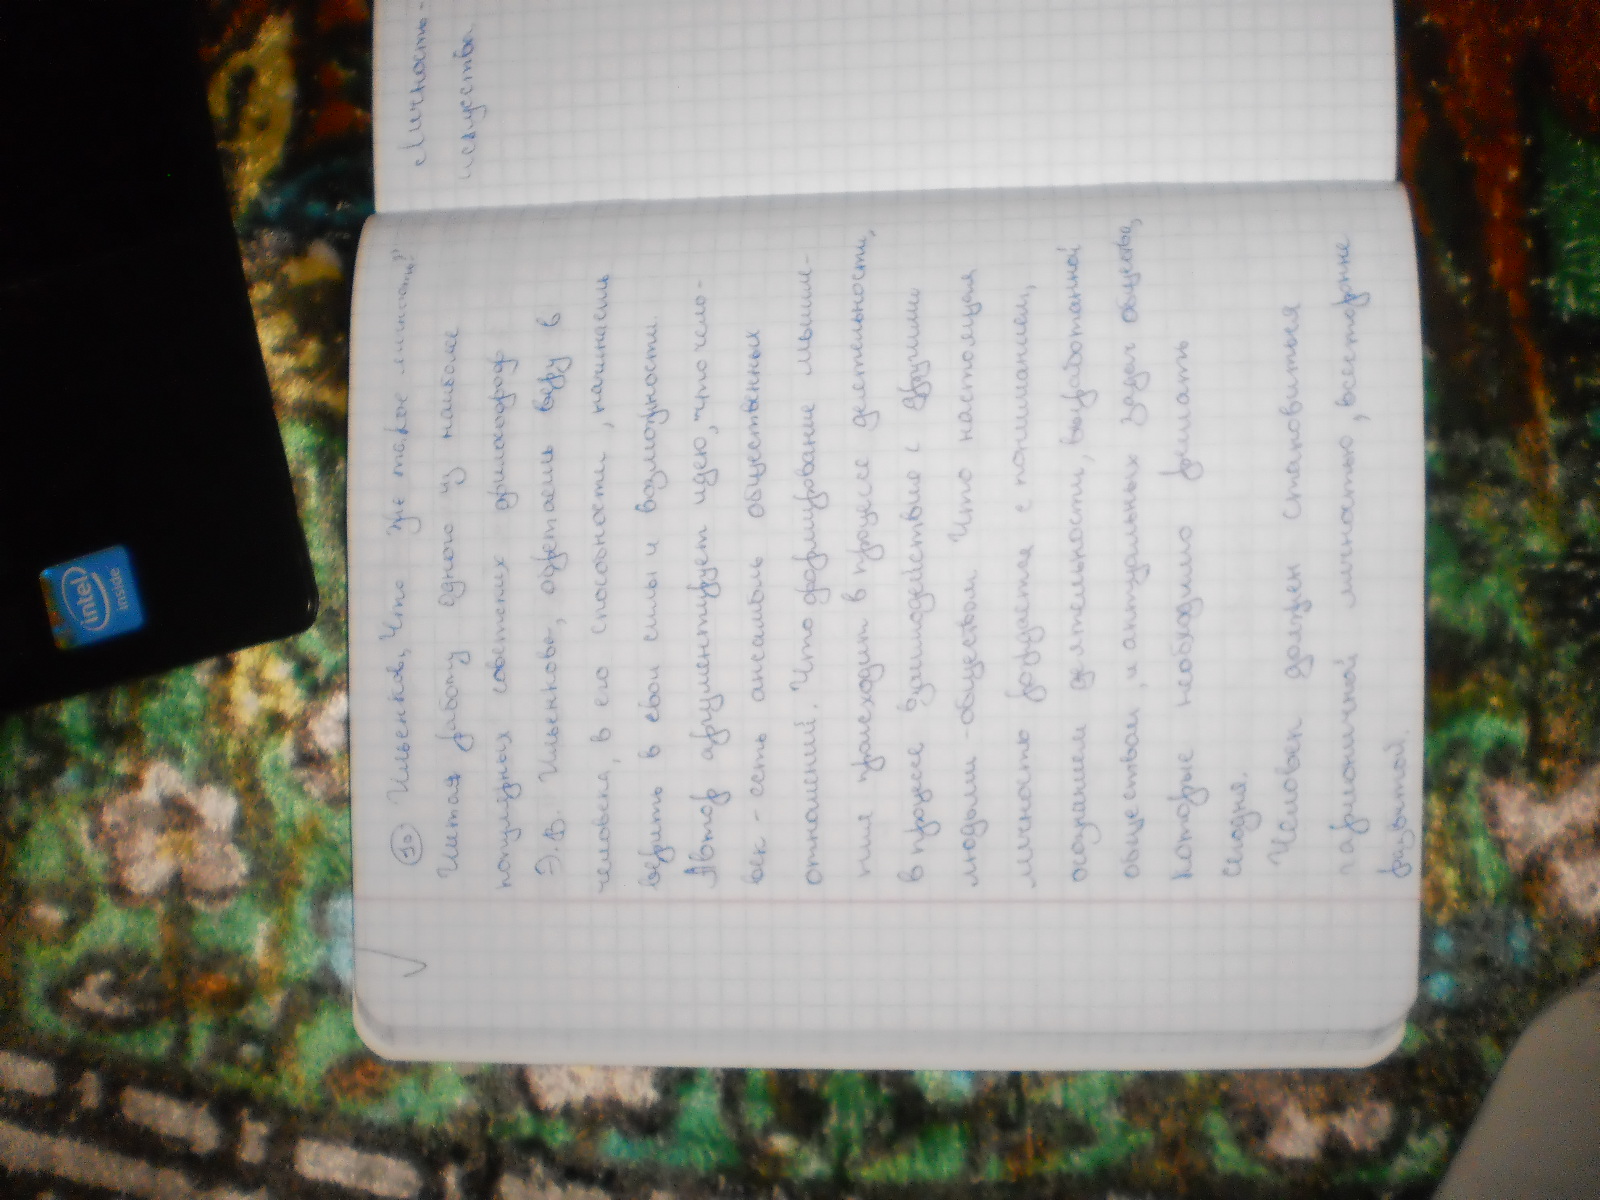 10 Ильенков, Что же такое личность?"
Читая работу одного из наиболее
популярных советских философов
Э.В. Ильенкова, обретаешь веру в
человека, в его способности, начинаешь
верить в свои силы и возможности.
Автор аргументирует идею, что чело-
век - есть ансамбль общественных
отношений. Что формирование мышле-
ния происходит в процессе деятельности,
в процессе взаимодействие с другими
людьми - обществом. Что настоящая
личность рождается с пониманием,
осознанием деятельности, выработанной
обществом, и актуальных задач общества,
которые необходимо решать
сегодня.
Человек должен становиться
гармоничной личностью, всесторонне
развитой.
Личность -
искусства.
intel
inside